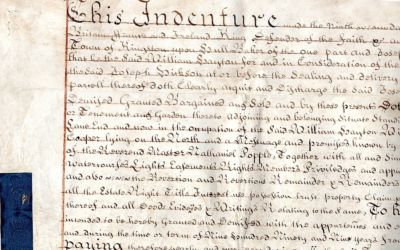 This Indenture made the Ninth
Britain France and Ireland King Defender of the Faith &
Town of Kingston upon Hull Baker of the one part and
that he the Said William Dayton for and in Consideration of the
the Said Joseph at or before the Sealing and delivery
parcell thereof doth Clearly acquit and Discharge the Said
Demised Granted Bargained and Sold and by these presents Doth
or Tenement and Garden thereto adjoining and belonging Situate Standing
Lane End and now in the occupation of the Said William Dayton
Cooper lying on the North and a Messuage and premises known by
of the Reverend Master Nathaniel Together with all and
watercourses Lights Easements Rights Members Priviledges and
and also the Reversion and Reversions Remainder & Remainders
all the Estate Right Title Interest use possession trust property Claim
thereof and all Deeds Evidences & Writings Relating to the Same, To
intended to be hereby Granted and Demised with the appurtenances
and during the time or term of Nine Hundred Ninety and Nine Years
paying therefore yearly and